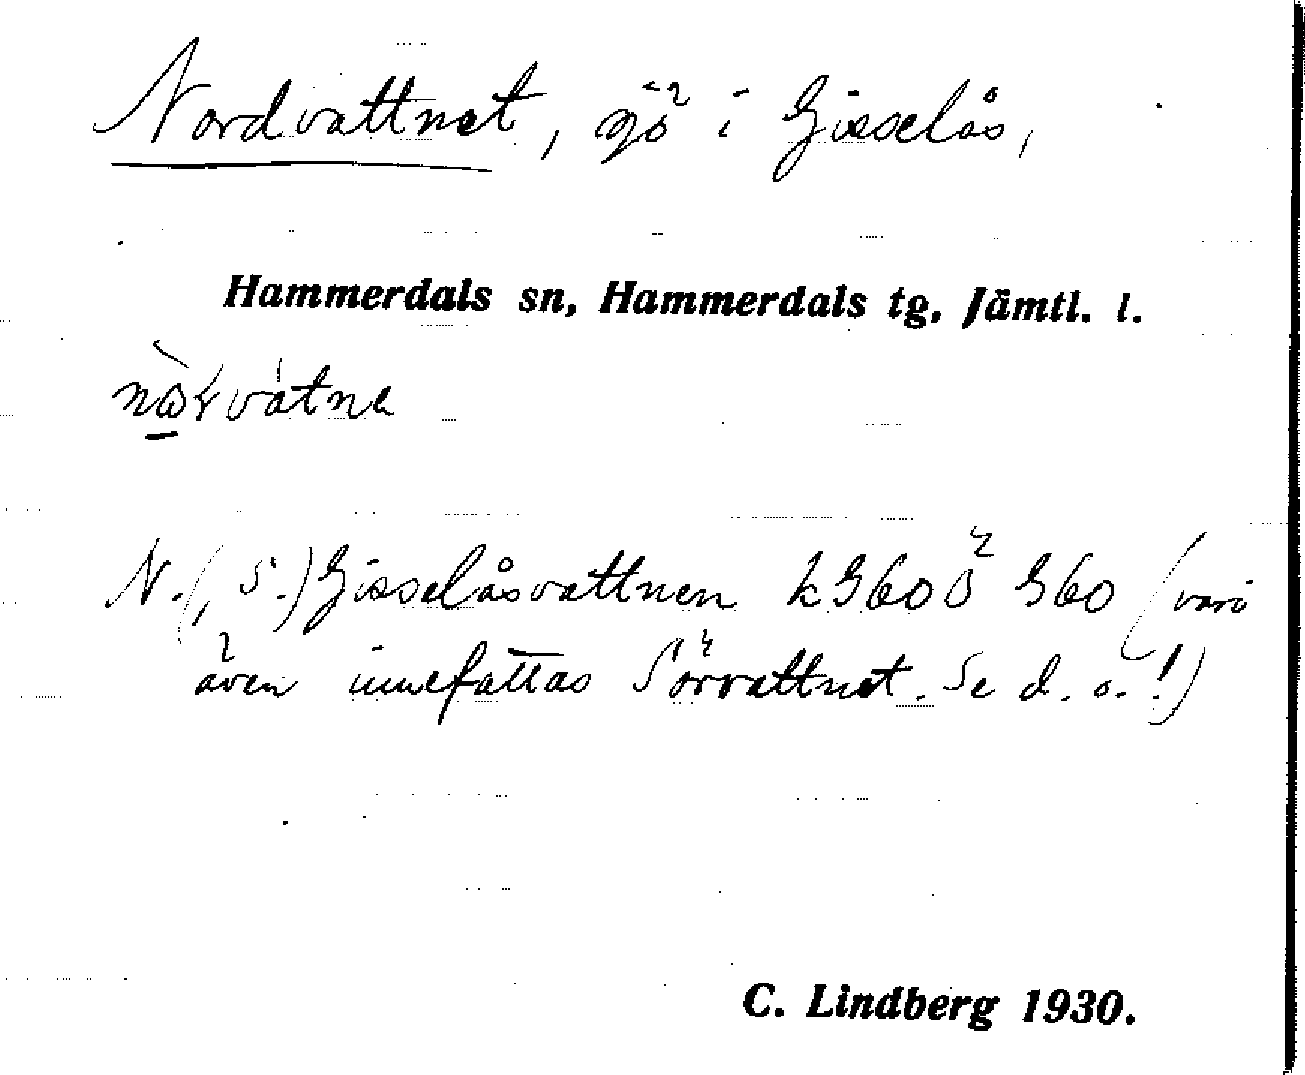 Nordvattnet, sjö i Gisselås,
Hammerdals sn, Hammerdals tg, Jämtl. l.
N.(, S.) Gisselåsvattnen k G60 ö G60 (vari
även innefattas Sörvattnet. Se d. o.!)
C. Lindberg 1930.